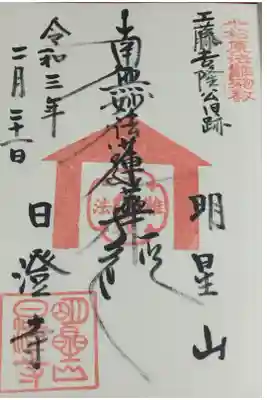 小松原法難殉教
工藤吉隆公旧跡
明星山
南無妙法蓮華経
法難
日澄寺
令和三年
二月二十一日
明星山
日澄寺